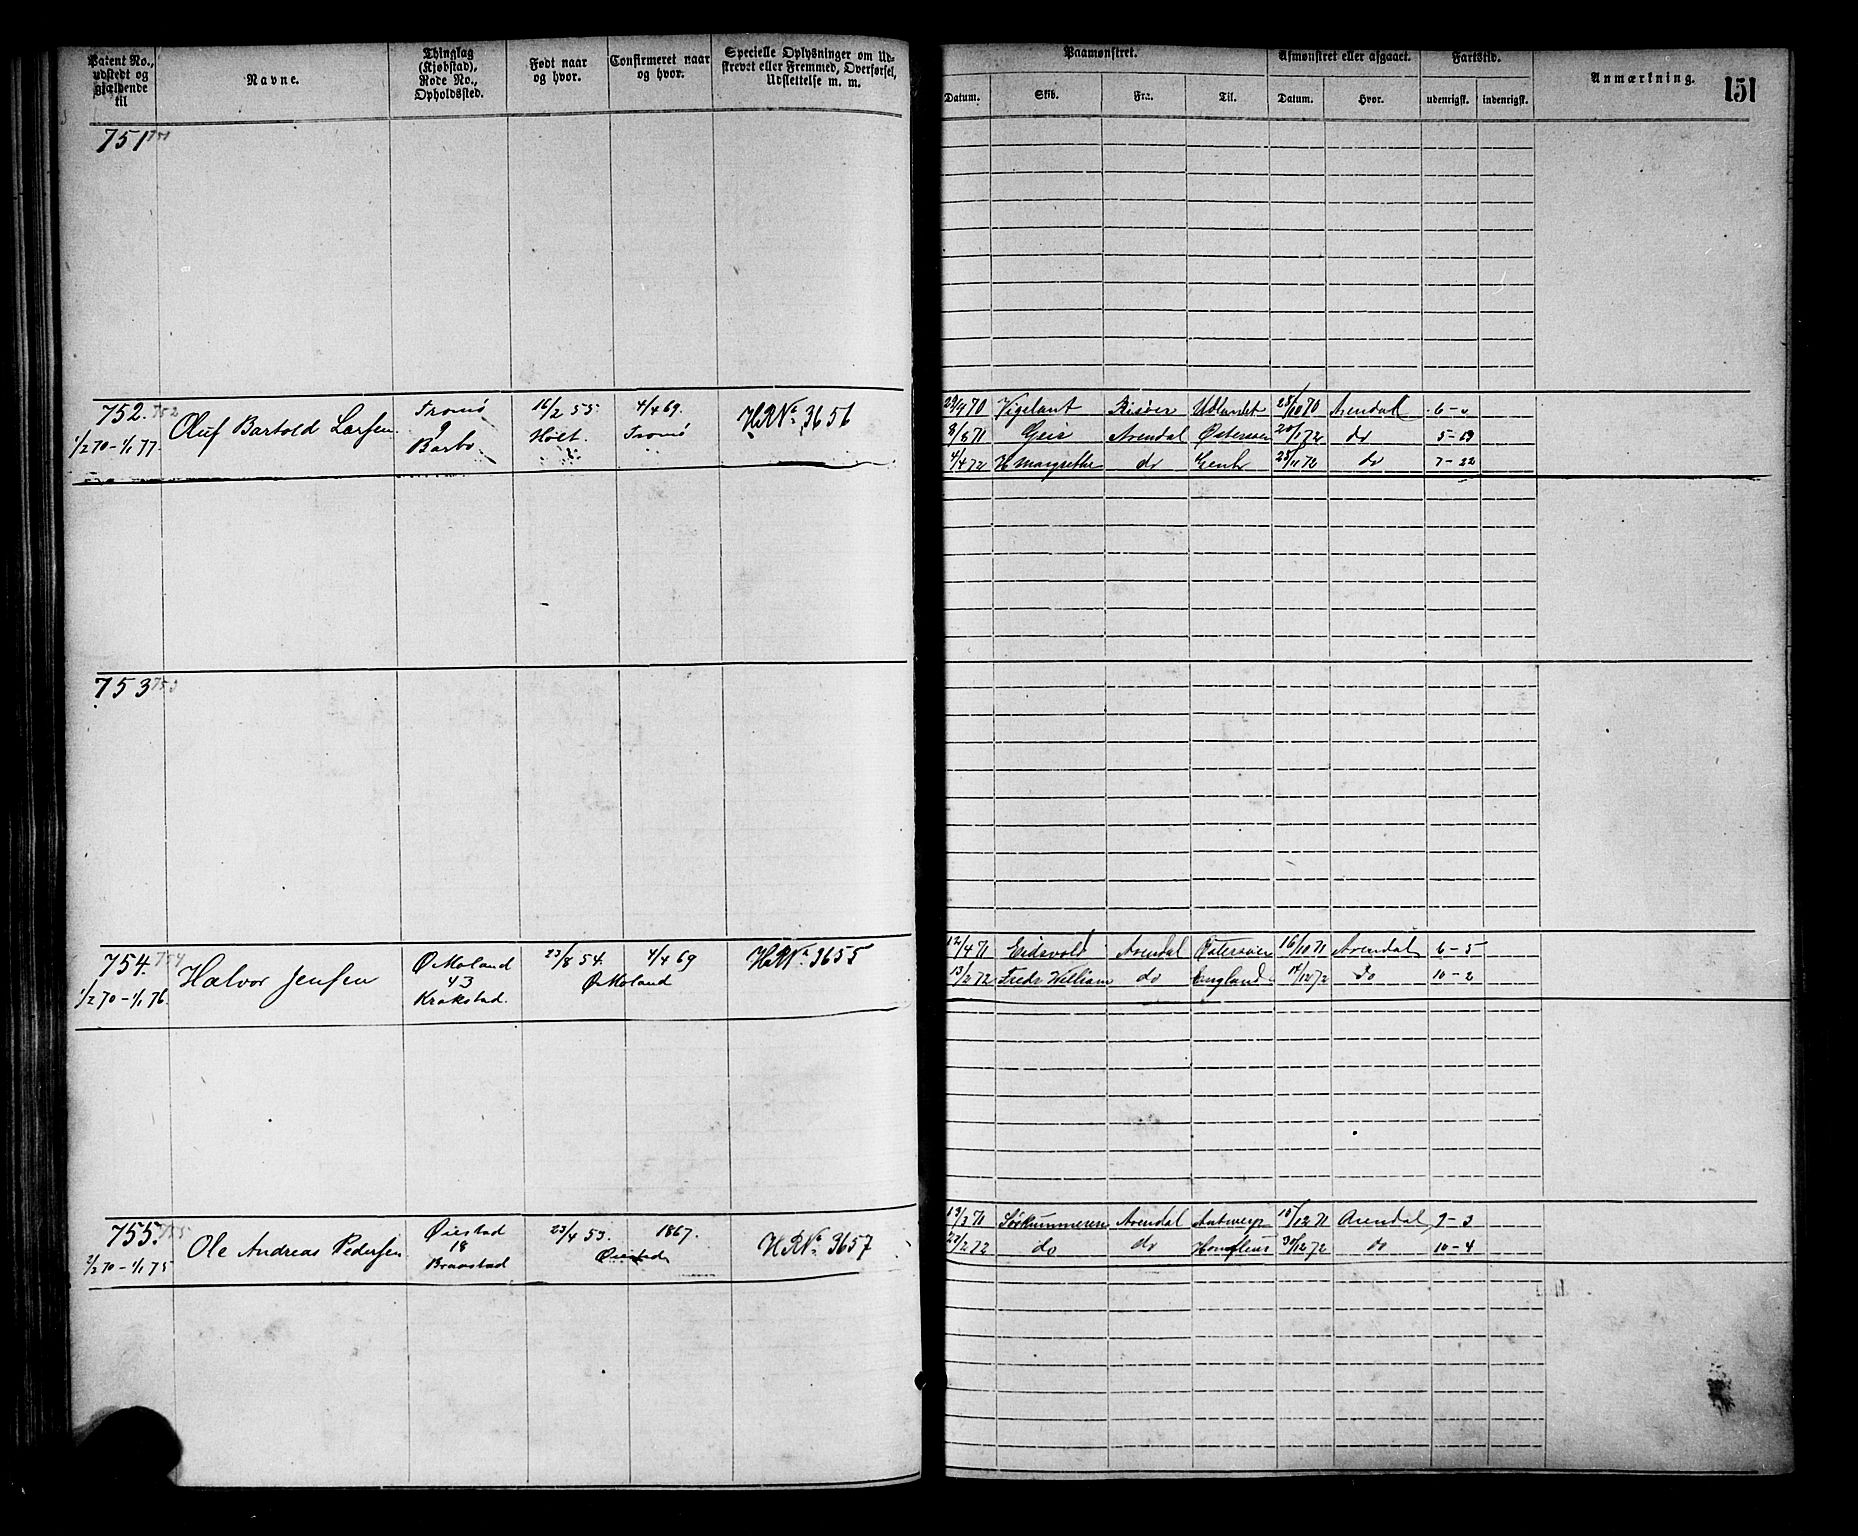 Patent No., udstedt og gjældende til
Navne.
Thinglag (Kjøbstad), Rode No., Opholdssted.
Født naar og hvor.
Confirmeret naar og hvor.
Specielle Oplysninger om Udskrevet eller Fremmed, Overførsel, Udslettelse m. m.
Paamønstret.
Afmønstret eller afgaaet.
Fartstid.
Anmærkning.
151
Datum. Skib. Fra. Til. Datum. Hvor. udenrigsk. indenrigsk.
751 751
752. 752
1/2 70 - 1/1 77.
Oluf Bartold Larsen.
Tromø
9
Barbo
16/2 55.
Holt.
4/4 69.
Tromø
HRNo. 3656
29/4 70 Vigelant Risøer Udlandet 25/10 70 Arendal 6 - "
8/8 71 Geir Arendal Østersøen 20/1 72 do 5 - 13
4/4 72 H Margrethe do Gent 25/11 72 do 7 - 22
753 753
754. 754
1/2 70 - 1/1 76.
Halvor Jensen
Ø Moland
43
Krokstad.
23/8 54.
4/4 69
Ø Moland
HRNo. 3655
12/4 71 Eidsvold Arendal Østersøen 16/10 71 Arendal 6 - 5
13/2 72 Fredr William do England 14/12 72 do 10 - 2
755. 755
2/2 70 - 1/1 75
Ole Andreas Pedersen
Øiestad
18
Braastad
23/4 53.
1867.
Øiestad
HRNo. 3657
13/3 71 Sørkummeren Arendal Antwerp 15/12 71 Arendal 9 - 3
27/2 72 do do Honfleur 30/12 72 do 10 - 4